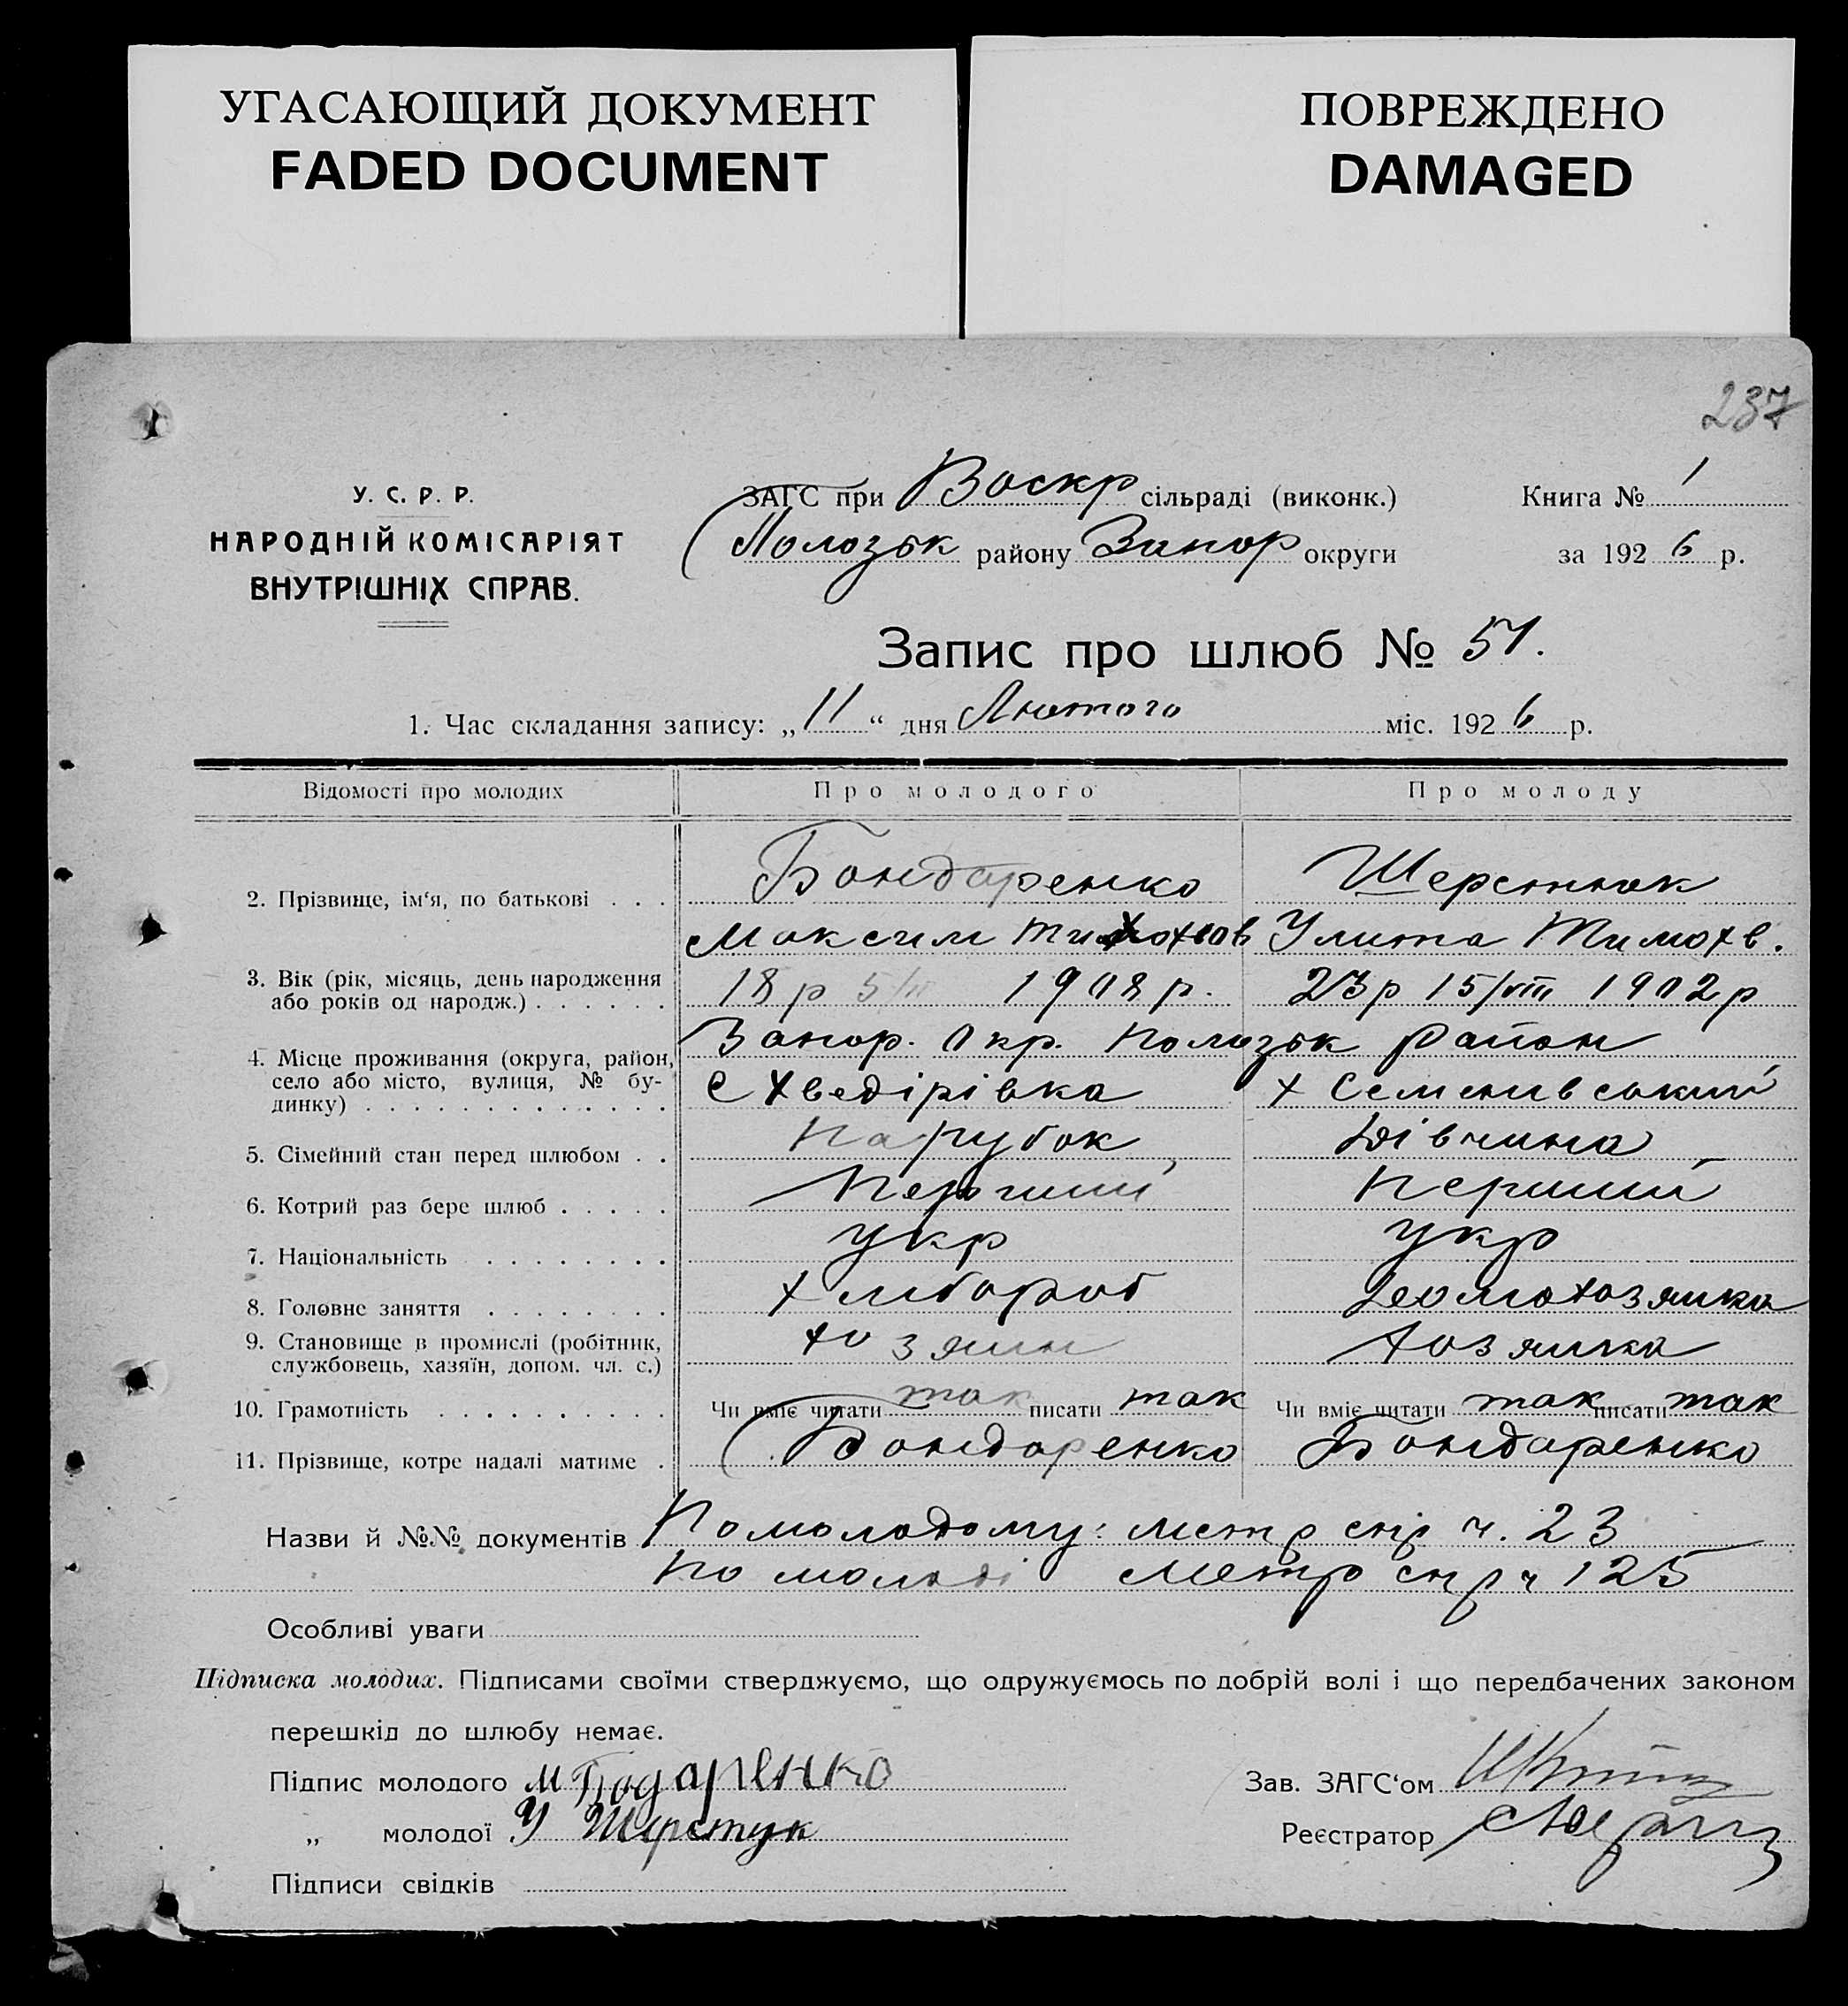 УГАСАЮЩИЙ ДОКУМЕНТ
FADED DOCUMENT
ПОВРЕЖДЕНО
DAMAGED
237
У. С. Р. Р.
НАРОДНІЙ КОМІСАРІЯТ
ВНУТРІШНІХ СПРАВ.
ЗАГС при Воскр сільраді (виконк.) Книга № 1
Пологзьк району Запор округи за 1926 р.
Запис про шлюб № 51.
1. Час складання запису: „11“ дня Лютого міс. 1926 р.
Відомості про молодих Про молодого Про молоду
2. Прізвище, ім‘я, по батькові . . . Бондаренко Шерстюк
Максим Улита Тимохв.
3. Вік (рік, місяць, день народження
або років од народж.) . . . . . . 18 р 5/II 1908 р. 23 р 15/VIII 1902 р
Запор. Окр. Пологзьк район
4. Місце проживання (округа, район,
село або місто, вулиця, № бу-
динку) . . . . . . . . . . . . . . С Хведірівка х Семенивський
5. Сімейний стан перед шлюбом . . Парубок Дівчина
6. Котрий раз бере шлюб . . . . . Перший Перший
7. Національність . . . . . . . . укр укр
8. Головне заняття . . . . . . . . Хлібороб Домохозяйка
9. Становище в промислі (робітник,
службовець, хазяїн, допом. чл. с.) хозяин хозяйка
10. Грамотність . . . . . . . . . . Чи вміє читати так писати так Чи вміє читати так писати так
11. Прізвище, котре надалі матиме . Бондаренко Бондаренко
Назви й №№ документів По молодому: метр спр ч. 23
По молоді метр спр ч 125
Особливі уваги
Підписка молодих. Підписами своїми стверджуємо, що одружуємось по добрій волі і що передбачених законом
перешкід до шлюбу немає.
Підпис молодого М Бодаренко Зав. ЗАГС‘ом
„ молодої У Шерстук Реєстратор
Підписи свідків